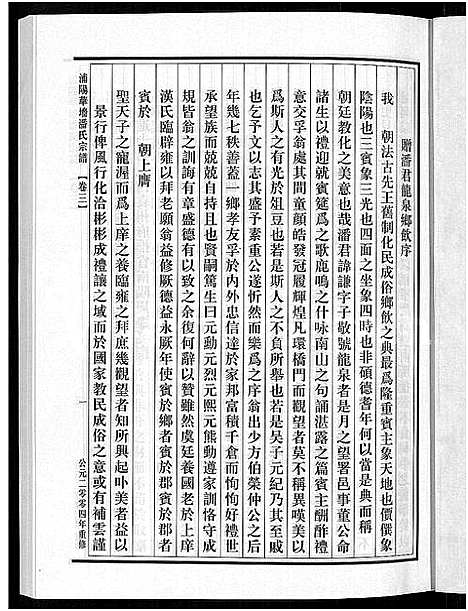 贈潘君龍泉鄉飲序
我　朝法古先王舊制化民成俗鄉飲之典最爲隆重賓主象天地也價僎象
陰陽也三賓象三光也四面之坐象四時也非碩德耆年何以當是典而稱
朝廷教化之美意也哉潘君諱謙字子敬號龍泉者是月之望署邑事董公命
生以禮迎就賓筵爲之歌鹿鳴之什咏南山之句誦湛露之篇賓主酬酢禮
意交孚翁也周其間童顏皓發冠履輝煌凡環橋門而觀望者莫不稱異嘆美以
爲斯人之有光於俎豆也若是斯人之不負所舉也若是吳子元紀乃其至戚
也乞予文以志其盛予素重公遂忻然而樂爲之序翁出少方伯榮仲公之后
年幾七秩善蓋一鄉孝友孚于內外忠信達於家邦富積千倉而恂恂好禮世
承望族而兢兢自持以致賢嗣篤生曰元動元烈元熙元熊動遵家訓恪守成
規皆翁之訓誨者章盛德有以致之余何將辭以贊雖然虞廷養國老於上庠
漢氏臨辟雍以拜老願翁益修厥德益永厥年使賓於鄉者賓於郡賓於郡者
賓於　朝上膺
聖天子之寵渥而爲上庠之養臨雍之拜庶幾觀望者知所興起卟美者益以
景行俾風行化洽彬彬成禮讓之域而於國家教民成俗之意或有補雲謹
浦陽華墻潘氏宗譜【卷三】
一
公元二零零四年重修